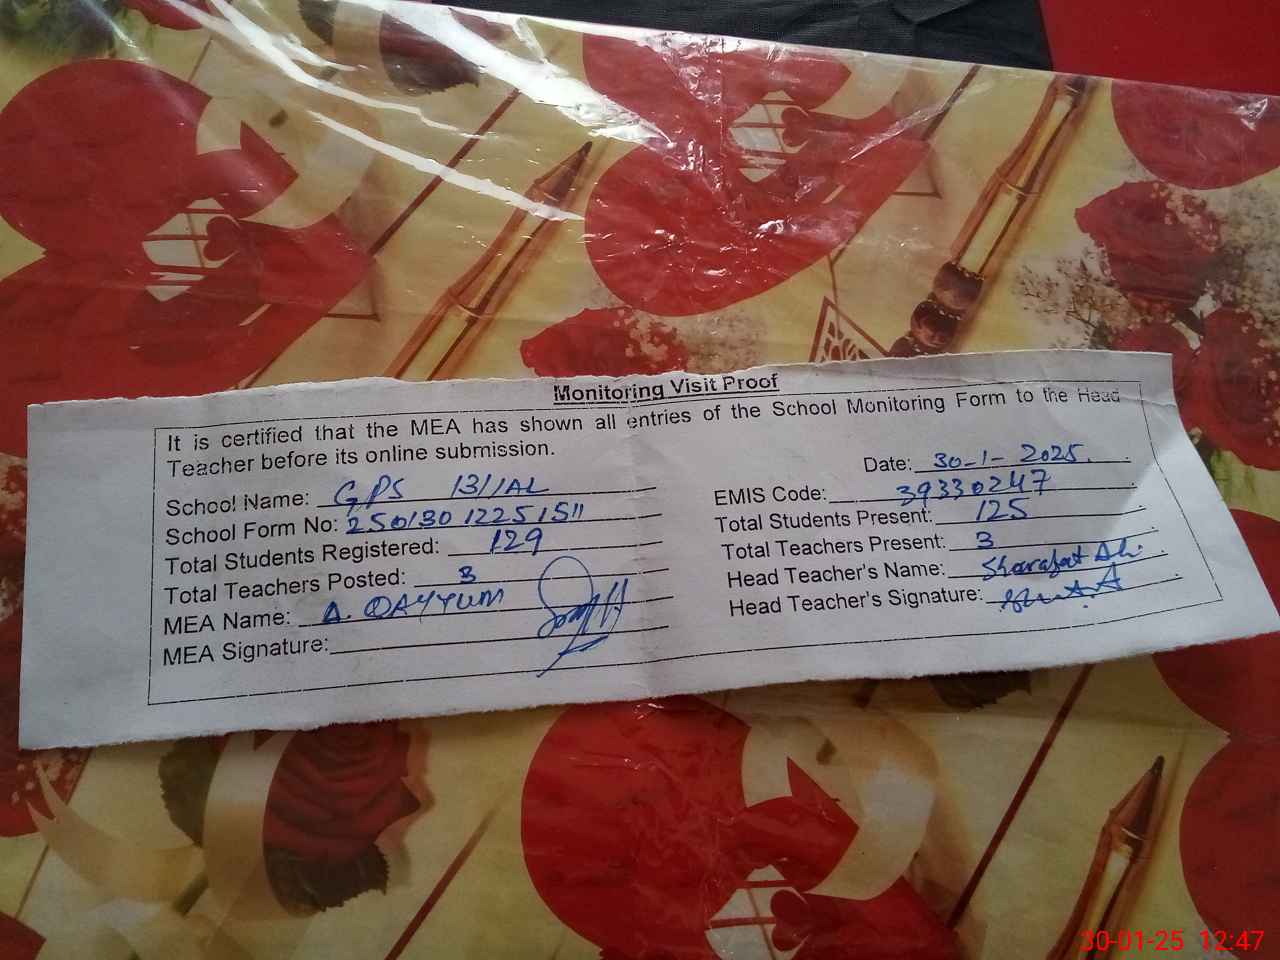 Monitoring Visit Proof
It is certified that the MEA has shown all entries of the School Monitoring Form to the Head
Teacher before its online submission.
Date: 30-1-2025.
School Name: GPS 131/AL
EMIS Code: 39330247
School Form No: 25013012251511
Total Students Present: 125
Total Students Registered: 129
Total Teachers Present: 3
Total Teachers Posted: 3
Head Teacher's Name: Sharafat Ali
MEA Name: A. QAYYUM
Head Teacher's Signature:
MEA Signature:
30-01-25 12:47